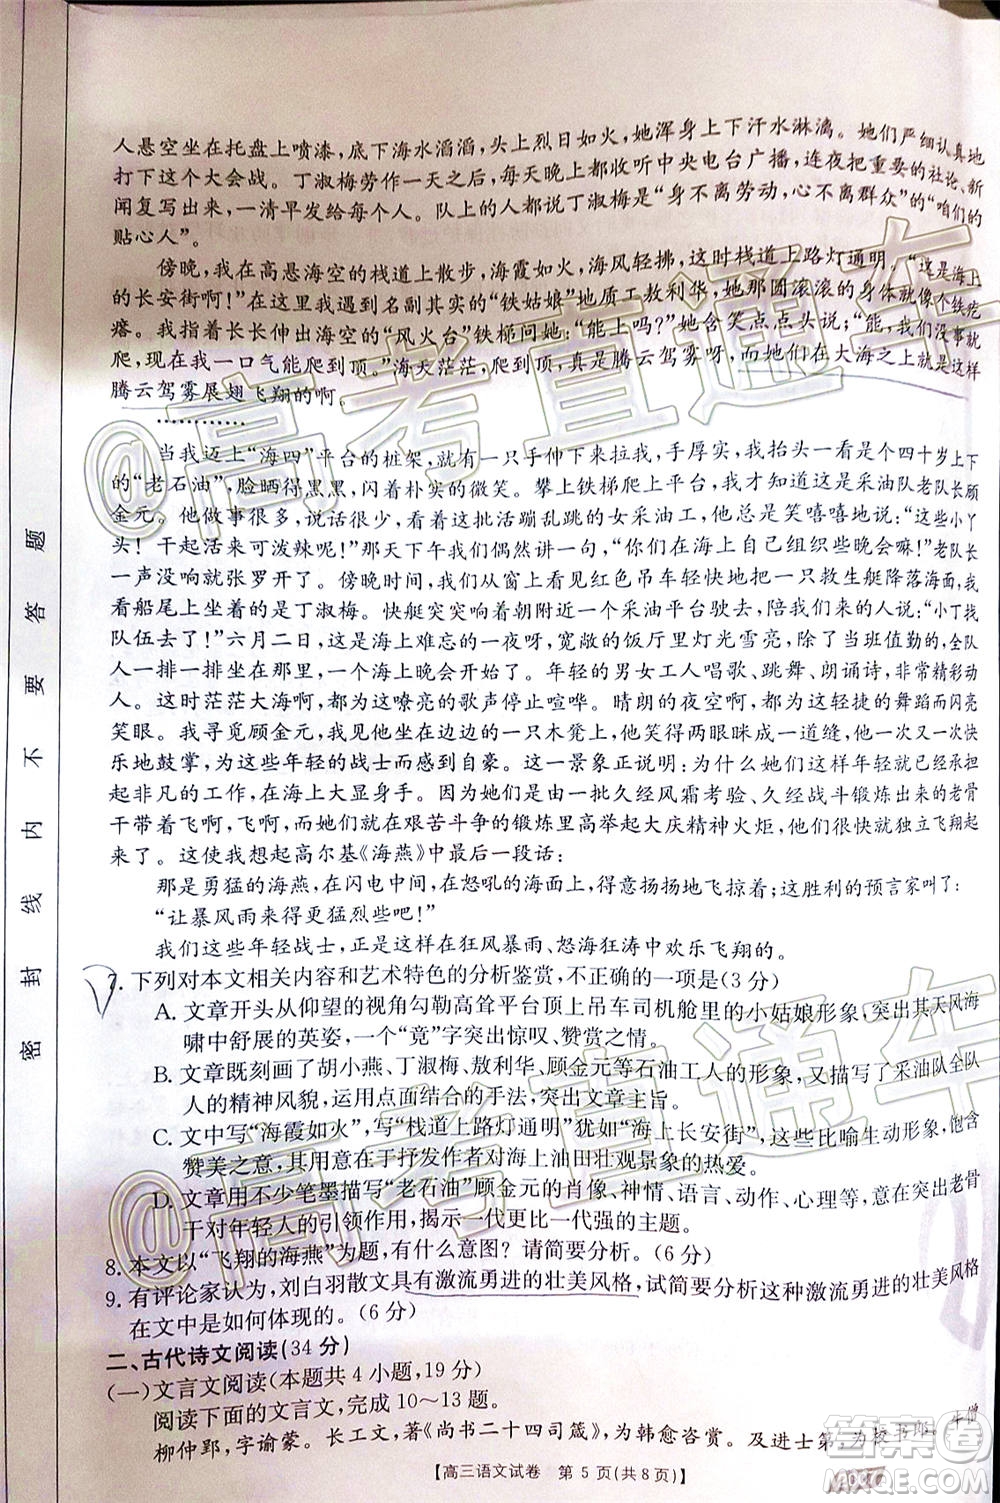 人悬空坐在托盘上喷漆，底下海水滔滔，头上烈日如火，她浑身上下汗水淋漓。她们严细认真地
打下这个大会战。丁淑梅劳作一天之后，每天晚上收听中央电台广播，连夜把重要的社论、新
闻复写出来，一清早发给队上每个人。队上的人都说丁淑梅是“身不离劳动，心不离群众”的“咱们的
贴心人”。
傍晚，我在高悬海空的栈道上散步，海霞如火，海风轻拂，这时栈道上路灯通明。“这是海上
的长安街啊！”在这儿我遇到了名副其实的“铁姑娘”地质工敖利华，她那圆滚滚的身体就像个铁疙
瘩。我指着长长伸出海空的“风火台”铁梯问她：“能上吗？”她含笑点点头说：“能，我们没事就
爬，现在我一口气能爬到顶。”海天茫茫，爬到顶，真是腾云驾雾呀，而她们在大海之上就是这样
腾云驾雾展翅飞翔的啊。
…………
当我迈上“海四”平台的桩架，就有一只手伸下来拉我，手厚实，我抬头一看是个四十岁上下
的“老石油”，脸晒得黑黑，闪着朴实的微笑。攀上铁梯爬上平台，我才知道这是采油队老队长顾
金元。他做事很多，说话很少，指着活蹦乱跳的女采油工，他只是笑嘻嘻地说：“这些小丫
头！干起活来可泼辣呢！”那天下午他们偶然讲一句：“你们在海上自己组织些晚会嘛！”老队长
一声没响就张罗开了。傍晚时间，我们从窗上看到红色吊车轻快地把一只救生艇落向海面，我
看着船尾上坐着的是丁淑梅。快艇突突地向另一个采油平台驶去，旁边的人说：“小丁找
队伍去了！”六月二日，这是海上难忘的一夜呀，宽敞的饭厅里灯光雪亮，除了当班值勤的，全队
人一排一排坐在那里，开了一个海上晚会。年轻的男女工人唱歌、跳舞、朗诵诗，非常精彩动
人。这时茫茫大海啊，都为这嘹亮的歌声停止喧哗。晴朗的夜空啊，都为这轻捷的舞蹈而闪亮
笑眼。我寻觅顾金元，原来他就坐在我前面的一只木凳上，他笑得两眼眯成一条缝，他愉快、快
乐地鼓掌，为这些年轻的战士而感到自豪。这一景象正说明：为什么她们这样年轻，却能承担
起非凡的工作，在海上大显身手。我想因为她们是由一批久经风霜考验、久经战斗锻炼出来的老骨
干带着飞啊，飞啊，她们在艰苦斗争的锻炼里高举起大庆精神火炬，怎么能不很快就独立飞翔起
来了。这使我想起高尔基《海燕》中最后一段话：
那是勇猛的海燕，在闪电中间，在怒吼的海面上，得意扬扬地飞掠着；这胜利的预言家叫了：
“让暴风雨来得更猛烈些吧！”
我们这些年轻战士，正是这样在狂风暴雨、怒海狂涛中欢乐飞翔的。
7. 下列对本文相关内容和艺术特色的分析鉴赏，不正确的一项是(3分)
A. 文章开头从仰望的视角勾勒高耸平台顶上吊车司机舱里的小姑娘形象，突出其天风海
啸中舒展的英姿，一个“竟”字突出惊叹、赞赏之情。
B. 文章既刻画了胡小燕、丁淑梅、敖利华、顾金元等石油工人的形象，又描写了采油队全队
人的精神风貌，采用点面结合的手法，突出文章主旨。
C. 文中写“海霞如火”，写“栈道上路灯通明”犹如“海上长安街”，这些比喻生动形象，饱含
赞美之意，意在于抒发作者对海上油田壮观景象的热爱。
D. 文章用不少笔墨描写“老石油”顾金元的肖像、神情、语言、动作、心理等，意在突出老骨
干对年轻人的引领作用，揭示一代更比一代强的主题。
8. 本文以“飞翔的海燕”为题，有什么意图？请简要分析。(6分)
9. 有评论家认为，刘白羽散文具有激流勇进的壮美风格，试简要分析这种激流勇进的壮美风格
在文中是如何体现的。(6分)
二、古代诗文阅读(34分)
(一)文言文阅读(本题共4小题，19分)
阅读下面的文言文，完成10～13题。
柳仲郢，字谕蒙。长工文，著《尚书二十四司箴》，为韩愈咨赏。及进士第，为校书郎。牛僧
【高三语文试卷 第5页(共8页)】
密封线内不要答题
@高考直通车
@高考直通车
答案